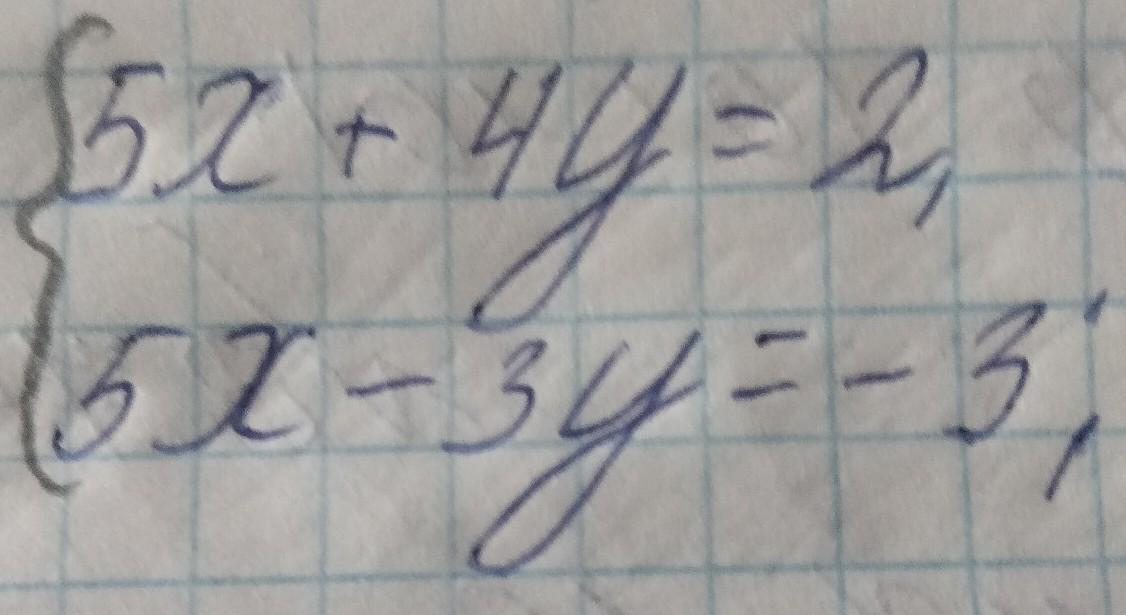 5x + 4y = 2,
5x - 3y = - 3;